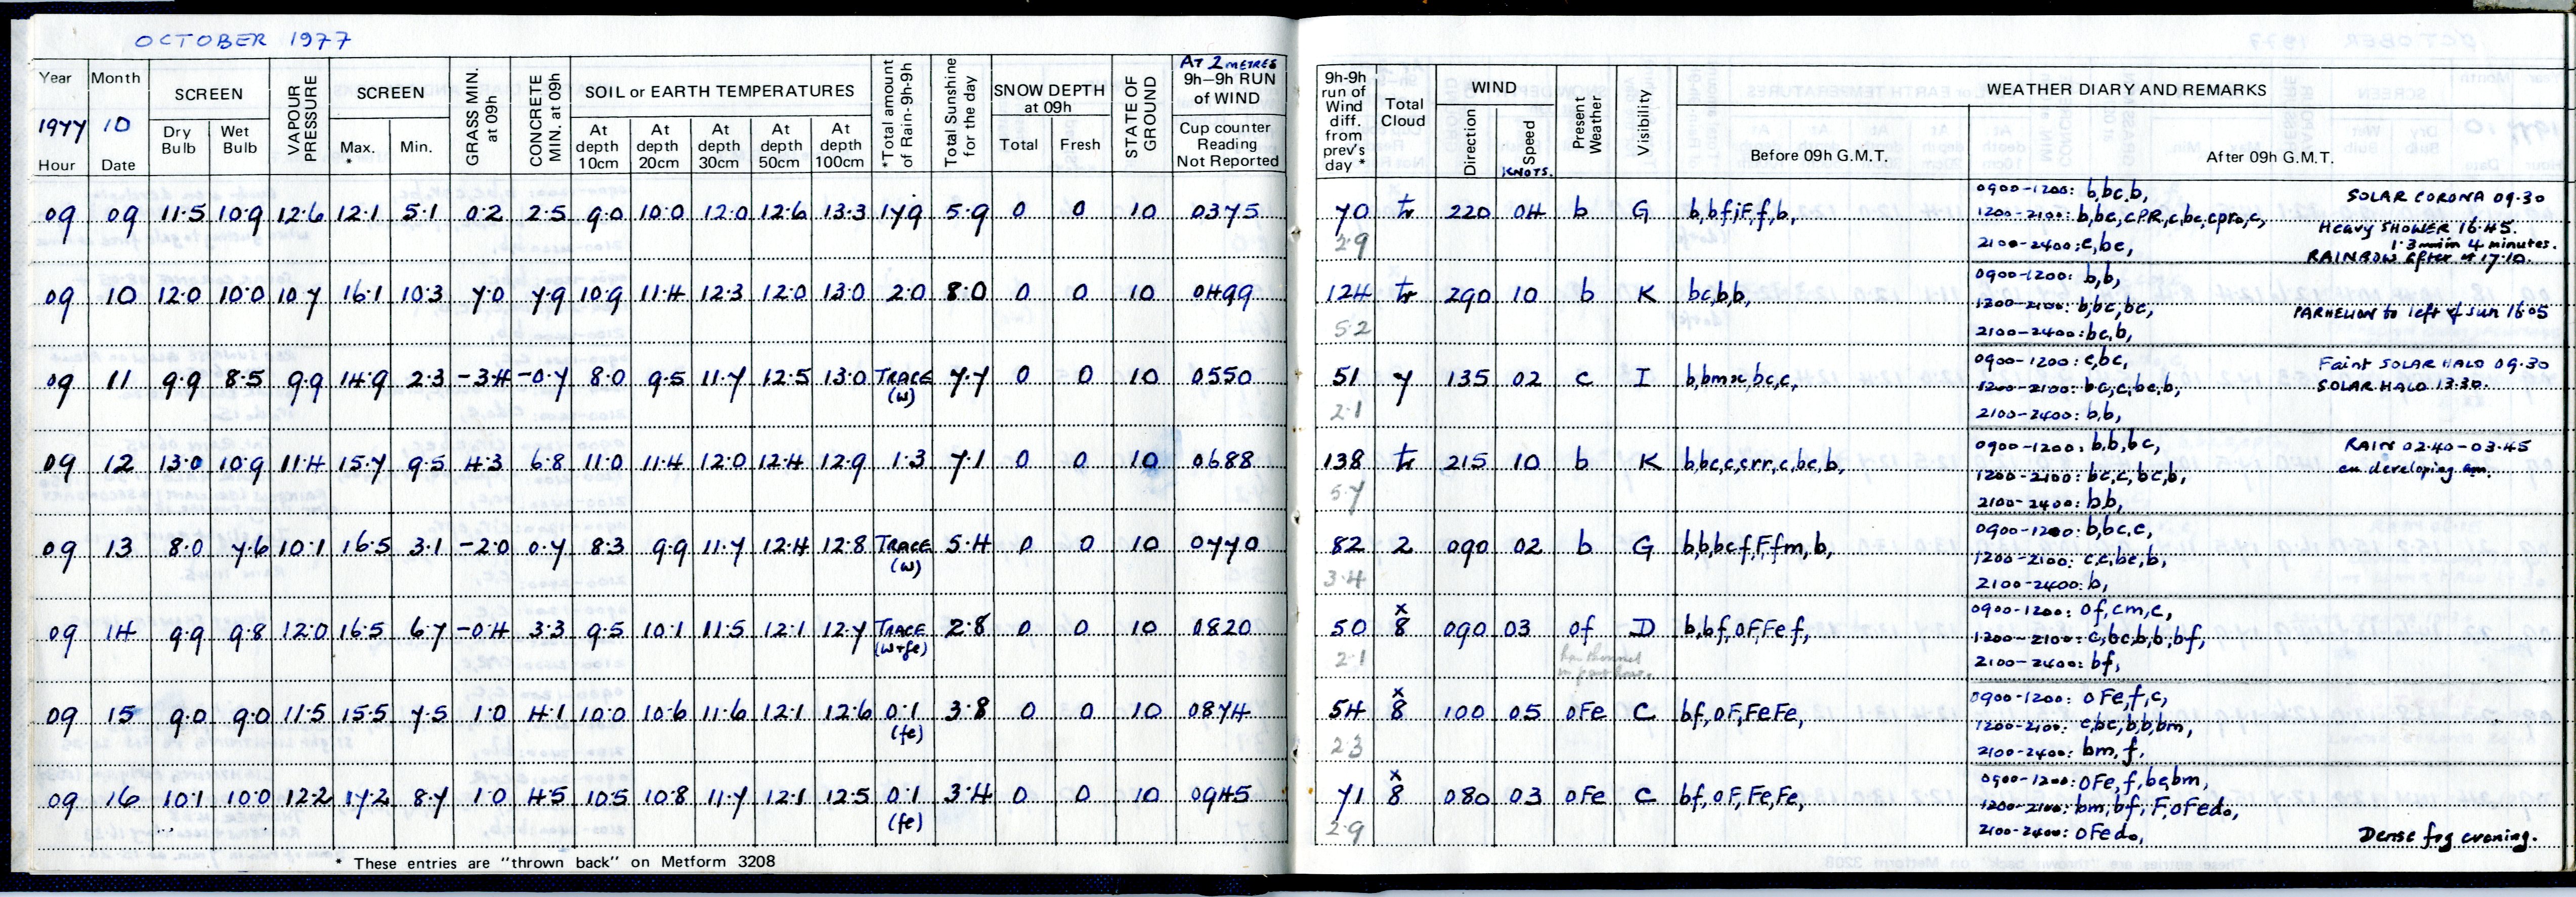 OCTOBER 1977
Year Month SCREEN VAPOUR PRESSURE SCREEN GRASS MIN. at 09h CONCRETE MIN. at 09h SOIL or EARTH TEMPERATURES *Total amount of Rain-9h-9h Total Sunshine for the day SNOW DEPTH at 09h STATE OF GROUND AT 2 METRES 9h-9h RUN of WIND
1977 10
Hour Date Dry Bulb Wet Bulb Max. * Min. At depth 10cm At depth 20cm At depth 30cm At depth 50cm At depth 100cm Total Fresh Cup counter Reading Not Reported
9h-9h run of Wind diff. from prev's day * Total Cloud WIND Direction Speed KNOTS. Present Weather Visibility WEATHER DIARY AND REMARKS
Before 09h G.M.T. After 09h G.M.T.
09 09 11.5 10.9 12.6 12.1 5.1 0.2 2.5 9.0 10.0 12.0 12.6 13.3 17.9 5.9 0 0 10 0375
70 tr 220 04 b G b,bf,iF,f,b,
2.9
0900-1200: b,bc,b, SOLAR CORONA 09.30
1200-2100: b,bc,cPR,c,bc,cpro,c, Heavy SHOWER 16.45.
1.3 mm in 4 minutes.
2100-2400: c,bc, RAINBOW after at 17.10.
09 10 12.0 10.0 10.7 16.1 10.3 7.0 7.9 10.9 11.4 12.3 12.0 13.0 2.0 8.0 0 0 10 0499
124 tr 290 10 b K bc,b,b,
5.2
0900-1200: b,b,
1200-2100: b,bc,bc, PARHELION to left of sun 16.05
2100-2400: bc,b,
09 11 9.9 8.5 9.9 14.9 2.3 -3.4 -0.7 8.0 9.5 11.7 12.5 13.0 TRACE (w) 7.7 0 0 10 0550
51 7 135 02 c I b,bmx,bc,c,
2.1
0900-1200: c,bc, Faint SOLAR HALO 09.30
1200-2100: bc,c,bc,b, SOLAR HALO 13.30.
2100-2400: b,b,
09 12 13.0 10.9 11.4 15.7 9.5 4.3 6.8 11.0 11.4 12.0 12.4 12.9 1.3 7.1 0 0 10 0688
138 tr 215 10 b K b,bc,c,crr,c,bc,b,
5.7
0900-1200: b,b,bc, RAIN 02.40-03.45
1200-2100: bc,c,bc,b, cu developing am.
2100-2400: b,b,
09 13 8.0 7.6 10.1 16.5 3.1 -2.0 0.7 8.3 9.9 11.7 12.4 12.8 TRACE (w) 5.4 0 0 10 0770
82 2 090 02 b G b,b,bcf,F,fm,b,
3.4
0900-1200: b,bc,c,
1200-2100: c,c,bc,b,
2100-2400: b,
09 14 9.9 9.8 12.0 16.5 6.7 -0.4 3.3 9.5 10.1 11.5 12.1 12.7 TRACE (w+fe) 2.8 0 0 10 0820
50 x 8 090 03 of D b,bf,oF,Fe f,
2.1
0900-1200: of,cm,c,
1200-2100: c,bc,b,b,bf,
2100-2400: bf,
09 15 9.0 9.0 11.5 15.5 7.5 1.0 4.1 10.0 10.6 11.6 12.1 12.6 0.1 (fe) 3.8 0 0 10 0874
54 x 8 100 05 oFe C bf,oF,FeFe,
2.3
0900-1200: oFe,f,c,
1200-2100: c,bc,b,b,bm,
2100-2400: bm,f,
09 16 10.1 10.0 12.2 17.2 8.7 1.0 4.5 10.5 10.8 11.7 12.1 12.5 0.1 (fe) 3.4 0 0 10 0945
71 x 8 080 03 oFe C bf,oF,Fe,Fe,
2.9
0900-1200: oFe,f,bc,bm,
1200-2100: bm,bf,F,oFedo,
2100-2400: oFedo, Dense fog evening.
* These entries are "thrown back" on Metform 3208